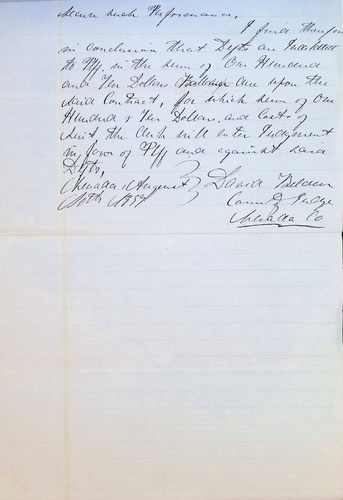 such Performance,
I find therefore
in conclusion that Defts are Indebted
to Plff. in the sum of One Hundred
and Ten Dollars Balance due upon the
said Contract, for which sum of One
Hundred & Ten Dollars, and Costs of
Suit the Clerk will enter Judgment
in favor of Plff and against said
Defts,
Nevada August
10th 1857
David Belden
County Judge
Nevada Co